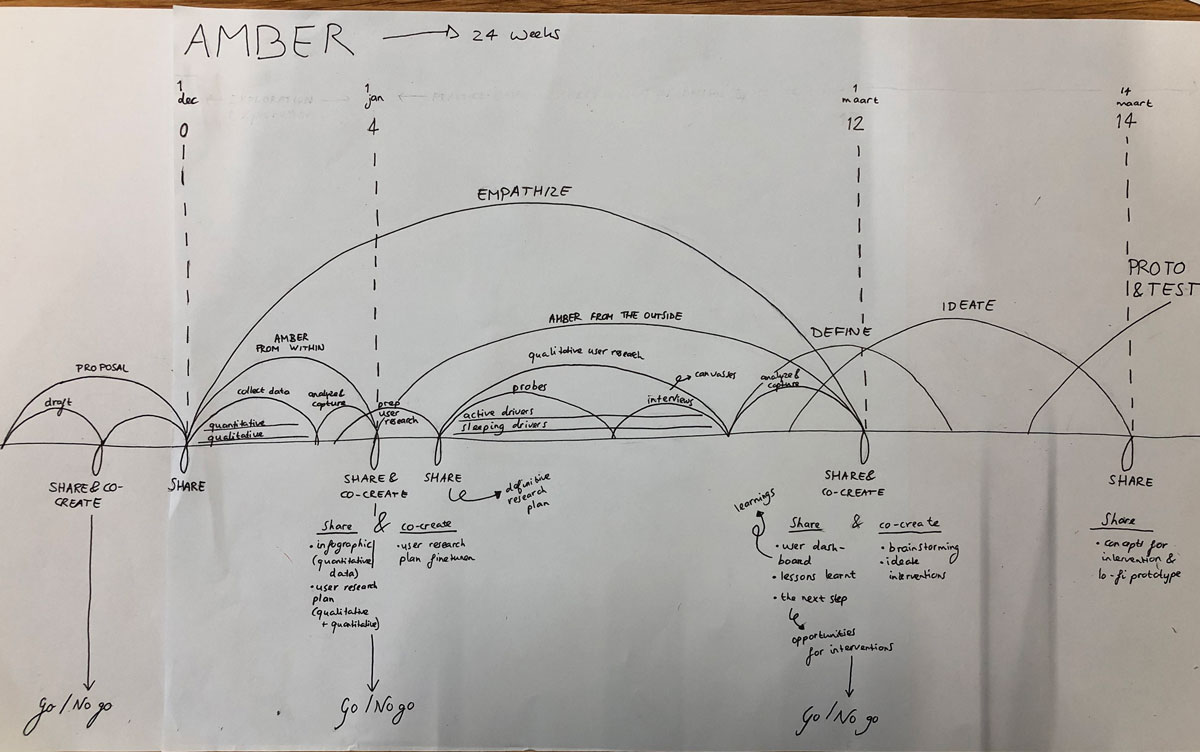 AMBER → 24 weeks
1 dec
0
1 jan
4
1 maart
12
14 maart
14
EMPATHIZE
PROTO
& TEST
IDEATE
AMBER FROM THE OUTSIDE
DEFINE
AMBER
FROM WITHIN
qualitative user research
PROPOSAL
draft
collect data
analyze &
capture
prep
user
research
probes
interviews
canvasses
analyze &
capture
quantitative
qualitative
active drivers
sleeping drivers
SHARE & CO-
CREATE
SHARE
SHARE &
CO-CREATE
SHARE
definitive
research
plan
SHARE &
CO-CREATE
SHARE
Share & co-create
• infographic
(quantitative
data)
• user research
plan
(qualitative
+ quantitative)
• user research
plan finetunen
learnings
Share & co-create
• user dash-
board
• lessons learnt
• the next step
opportunities
for interventions
• brainstorming
• ideate
interventions
Share
• concepts for
intervention &
lo-fi prototype
Go / No go
Go / No go
Go / No go